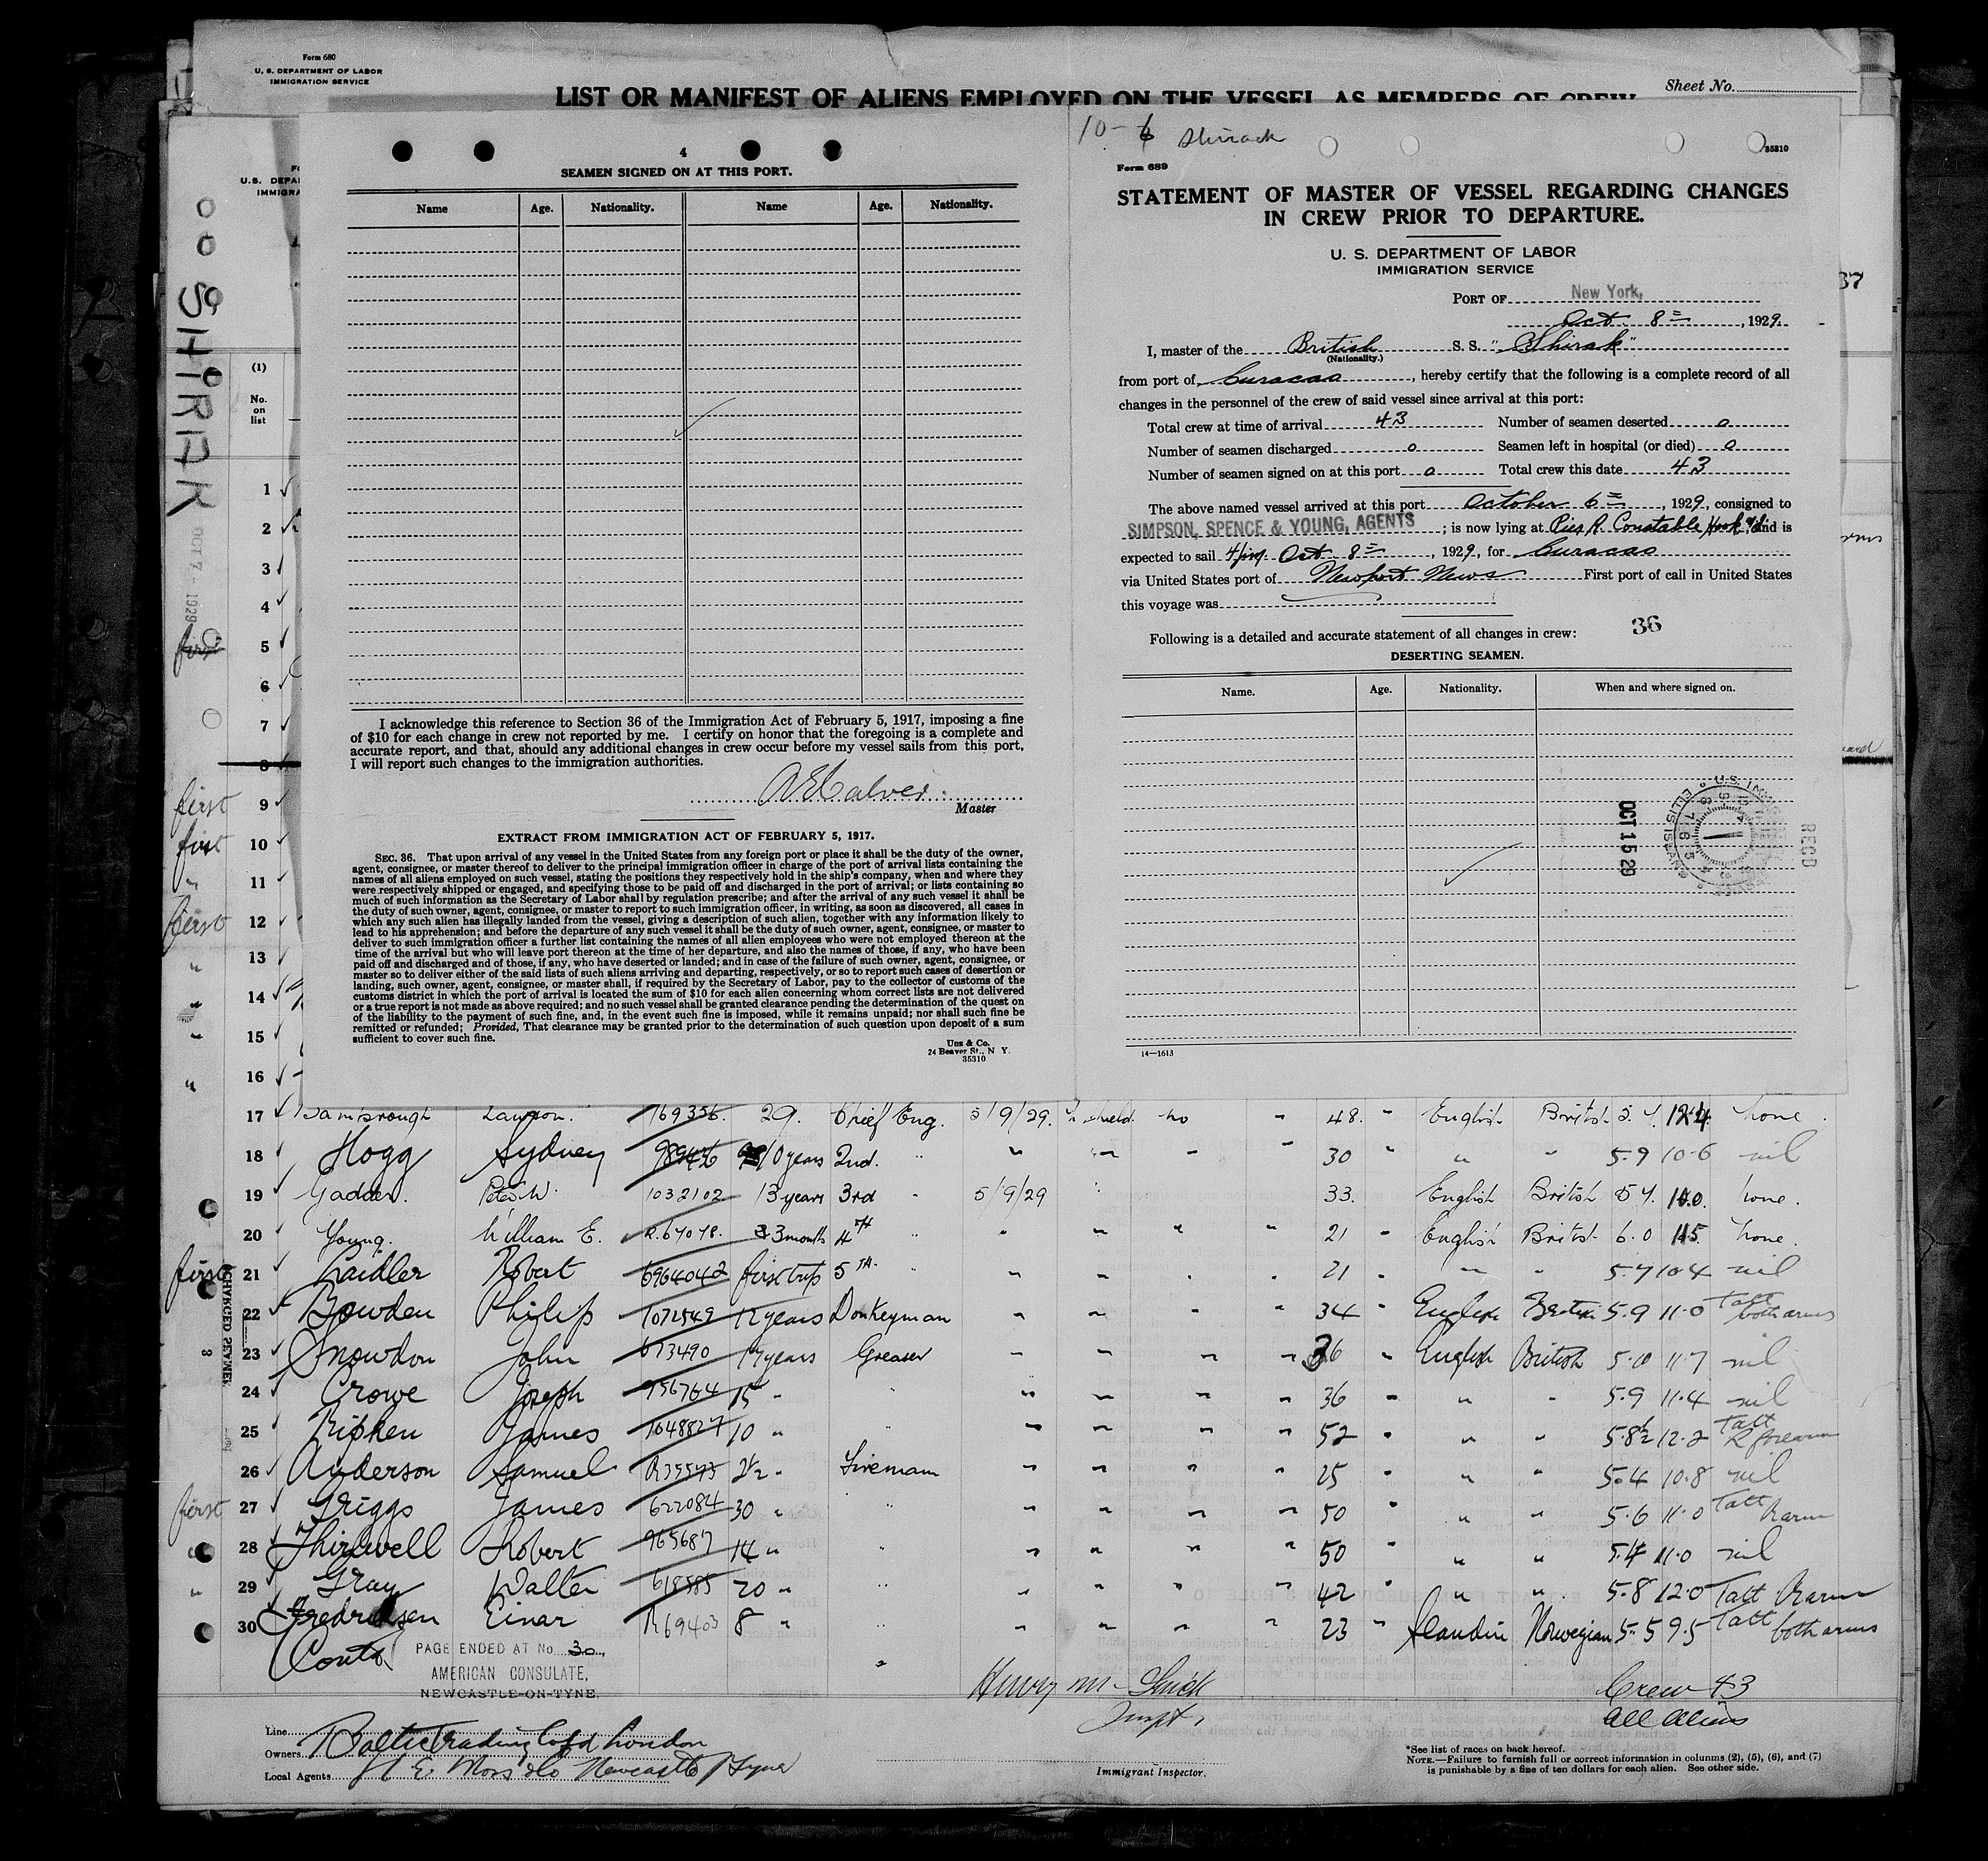 Form 680
U. S. DEPARTMENT OF LABOR
IMMIGRATION SERVICE
Sheet No.
LIST OR MANIFEST OF ALIENS EMPLOYED ON THE VESSEL AS MEMBERS OF CREW
SHIRAK
OCT 7 1929
(1)
No.
on
list
4
SEAMEN SIGNED ON AT THIS PORT.
Name Age. Nationality. Name Age. Nationality.
I acknowledge this reference to Section 36 of the Immigration Act of February 5, 1917, imposing a fine
of $10 for each change in crew not reported by me. I certify on honor that the foregoing is a complete and
accurate report, and that, should any additional changes in crew occur before my vessel sails from this port,
I will report such changes to the immigration authorities.
Master
EXTRACT FROM IMMIGRATION ACT OF FEBRUARY 5, 1917.
SEC. 36. That upon arrival of any vessel in the United States from any foreign port or place it shall be the duty of the owner,
agent, consignee, or master thereof to deliver to the principal immigration officer in charge of the port of arrival lists containing the
names of all aliens employed on such vessel, stating the positions they respectively hold in the ship's company, when and where they
were respectively shipped or engaged, and specifying those to be paid off and discharged in the port of arrival; or lists containing so
much of such information as the Secretary of Labor shall by regulation prescribe; and after the arrival of any such vessel it shall be
the duty of such owner, agent, consignee, or master to report to such immigration officer, in writing, as soon as discovered, all cases in
which any such alien has illegally landed from the vessel, giving a description of such alien, together with any information likely to
lead to his apprehension; and before the departure of any such vessel it shall be the duty of such owner, agent, consignee, or master to
deliver to such immigration officer a further list containing the names of all alien employees who were not employed thereon at the
time of the arrival but who will leave port thereon at the time of her departure, and also the names of those, if any, who have been
paid off and discharged and of those, if any, who have deserted or landed; and in case of the failure of such owner, agent, consignee, or
master so to deliver either of the said lists of such aliens arriving and departing, respectively, or so to report such cases of desertion or
landing, such owner, agent, consignee, or master shall, if required by the Secretary of Labor, pay to the collector of customs of the
customs district in which the port of arrival is located the sum of $10 for each alien concerning whom correct lists are not delivered
or a true report is not made as above required; and no such vessel shall be granted clearance pending the determination of the quest on
of the liability to the payment of such fine, and, in the event such fine is imposed, while it remains unpaid; nor shall such fine be
remitted or refunded; Provided, That clearance may be granted prior to the determination of such question upon deposit of a sum
sufficient to cover such fine.
Uns & Co.
24 Beaver St., N Y.
35310
10-6 Shirack
35310
Form 689
STATEMENT OF MASTER OF VESSEL REGARDING CHANGES
IN CREW PRIOR TO DEPARTURE.
U. S. DEPARTMENT OF LABOR
IMMIGRATION SERVICE
PORT OF New York,
Oct 8 =, 1929.
I, master of the British S. S. "Shirak"
(Nationality.)
from port of Curacao, hereby certify that the following is a complete record of all
changes in the personnel of the crew of said vessel since arrival at this port:
Total crew at time of arrival 43 Number of seamen deserted 0
Number of seamen discharged 0 Seamen left in hospital (or died) 0
Number of seamen signed on at this port 0 Total crew this date 43
The above named vessel arrived at this port October 6 =, 1929, consigned to
SIMPSON, SPENCE & YOUNG, AGENTS; is now lying at Pier R. Constable Hook NJ and is
expected to sail 4 pm Oct 8 =, 1929, for Curacao
via United States port of Newport News First port of call in United States
this voyage was
36
Following is a detailed and accurate statement of all changes in crew:
DESERTING SEAMEN.
Name. Age. Nationality. When and where signed on.
OCT 15 29
RECD
14—1613
17 Lawson 169356. 29. Chief Eng. 5/9/29. no " 48. " English British 5.7. 12.4 none.
18 Hogg Sydney 10 years 2nd. " " " " " 30 " " 5.9 10.6 nil
19 Peter W. 1032102 13 years 3rd " 5/9/29 " 33. English British 5 7. none.
20 Young. William E. R.67078. 3 months 4th " " " " " 21 " English British 6.0 11.5. none.
first 21 Laidler Robert first trip 5th. " " " . . 21 " " " 5.7 10.4 nil
22 Bowden Philip 1072549 12 years Donkeyman " " " " 34 " English British 5.9 11.0 Tatt both arms
23 Snowdon John 673490 17 years Greaser " " " " 36 " English British 5.10 11.7 nil
24 Crowe Joseph 756764 15 " " " " " " 36 " " " 5.9 11.4 nil
25 Ripken James 1048827 10 " " " " " " 52 " " " 5.8½ 12.2 Tatt R forearm
26 Anderson Samuel R35573 2½ " Fireman " " " " 25 " " " 5.4 10.8 nil
first 27 Griggs James 622084 30 " " " " " " 50 " " " 5.6 11.0 Tatt R arm
28 Thirlwell Robert 965687 14 " " " " " " 50 " " " 5.4 11.0 nil
29 Gray Walter 618585 20 " " " " " " 42 " " " 5.8 12.0 Tatt R arm
30 Fredriksen Einar R69403 8 " " " " " " 23 " Scandin Norwegian 5.5 9.5 Tatt both arms
Contd PAGE ENDED AT No. 30.
AMERICAN CONSULATE,
NEWCASTLE-ON-TYNE.
Crew 43
All aliens
Line
Owners Baltic Trading Co Ltd London
Local Agents Newcastle / Tyne
Immigrant Inspector.
*See list of races on back hereof.
NOTE.—Failure to furnish full or correct information in columns (2), (5), (6), and (7)
is punishable by a fine of ten dollars for each alien. See other side.